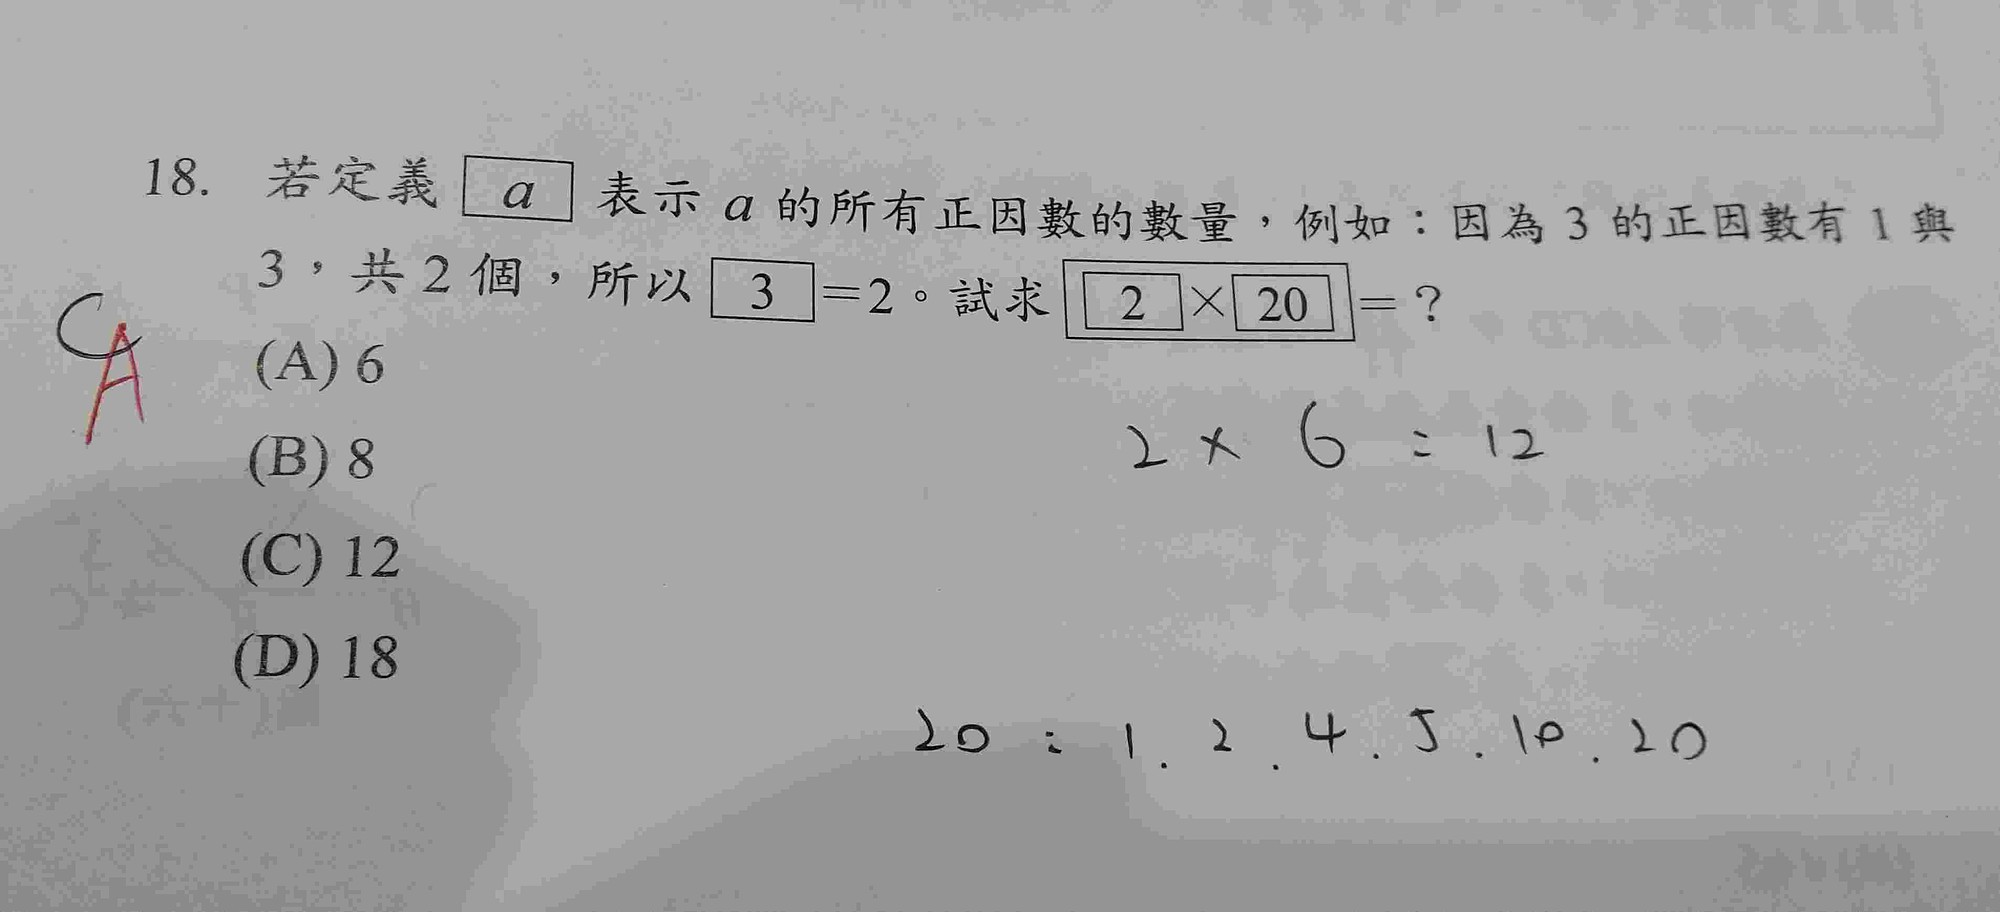 18. 若定義 a 表示 a 的所有正因數的數量，例如：因為 3 的正因數有 1 與
3，共 2 個，所以 3 =2。試求 2 × 20 =？
C
A
(A) 6
(B) 8
(C) 12
(D) 18
2 × 6 = 12
20 : 1. 2. 4. 5. 10. 20